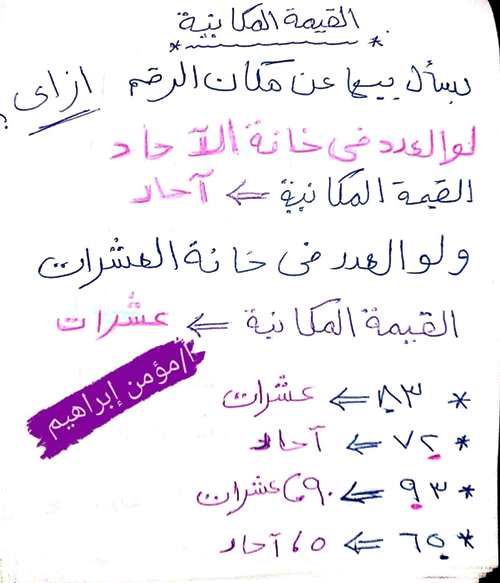 القيمة المكانية
بسأل بيها عن مكان الرقم ازاى ؟
لو العدد فى خانة الآحاد
القيمة المكانية ⇐ آحاد
ولو العدد فى خانة العشرات
القيمة المكانية ⇐ عشرات
أ/مؤمن إبراهيم
* ٨٣ ⇐ عشرات
* ٧٢ ⇐ آحاد
* ٩٣ ⇐ ٩٠، عشرات
* ٦٥ ⇐ ٥، آحاد